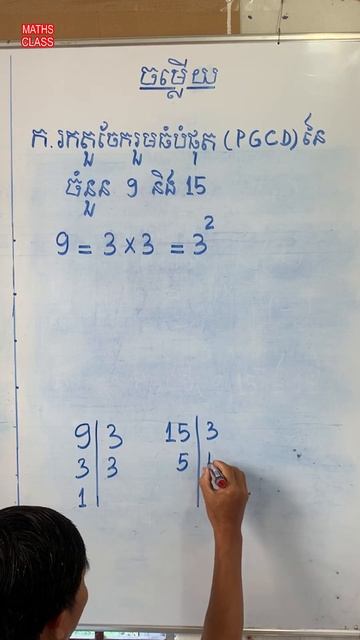 MATHS
CLASS
ចម្លើយ
ក. រកតួចែករួមធំបំផុត (PGCD) នៃ
ចំនួន 9 និង 15
9 = 3 × 3 = 3²
9 | 3 15 | 3
3 | 3 5 |
1 |